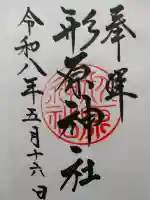 奉拝
形原神社
令和八年五月十六日